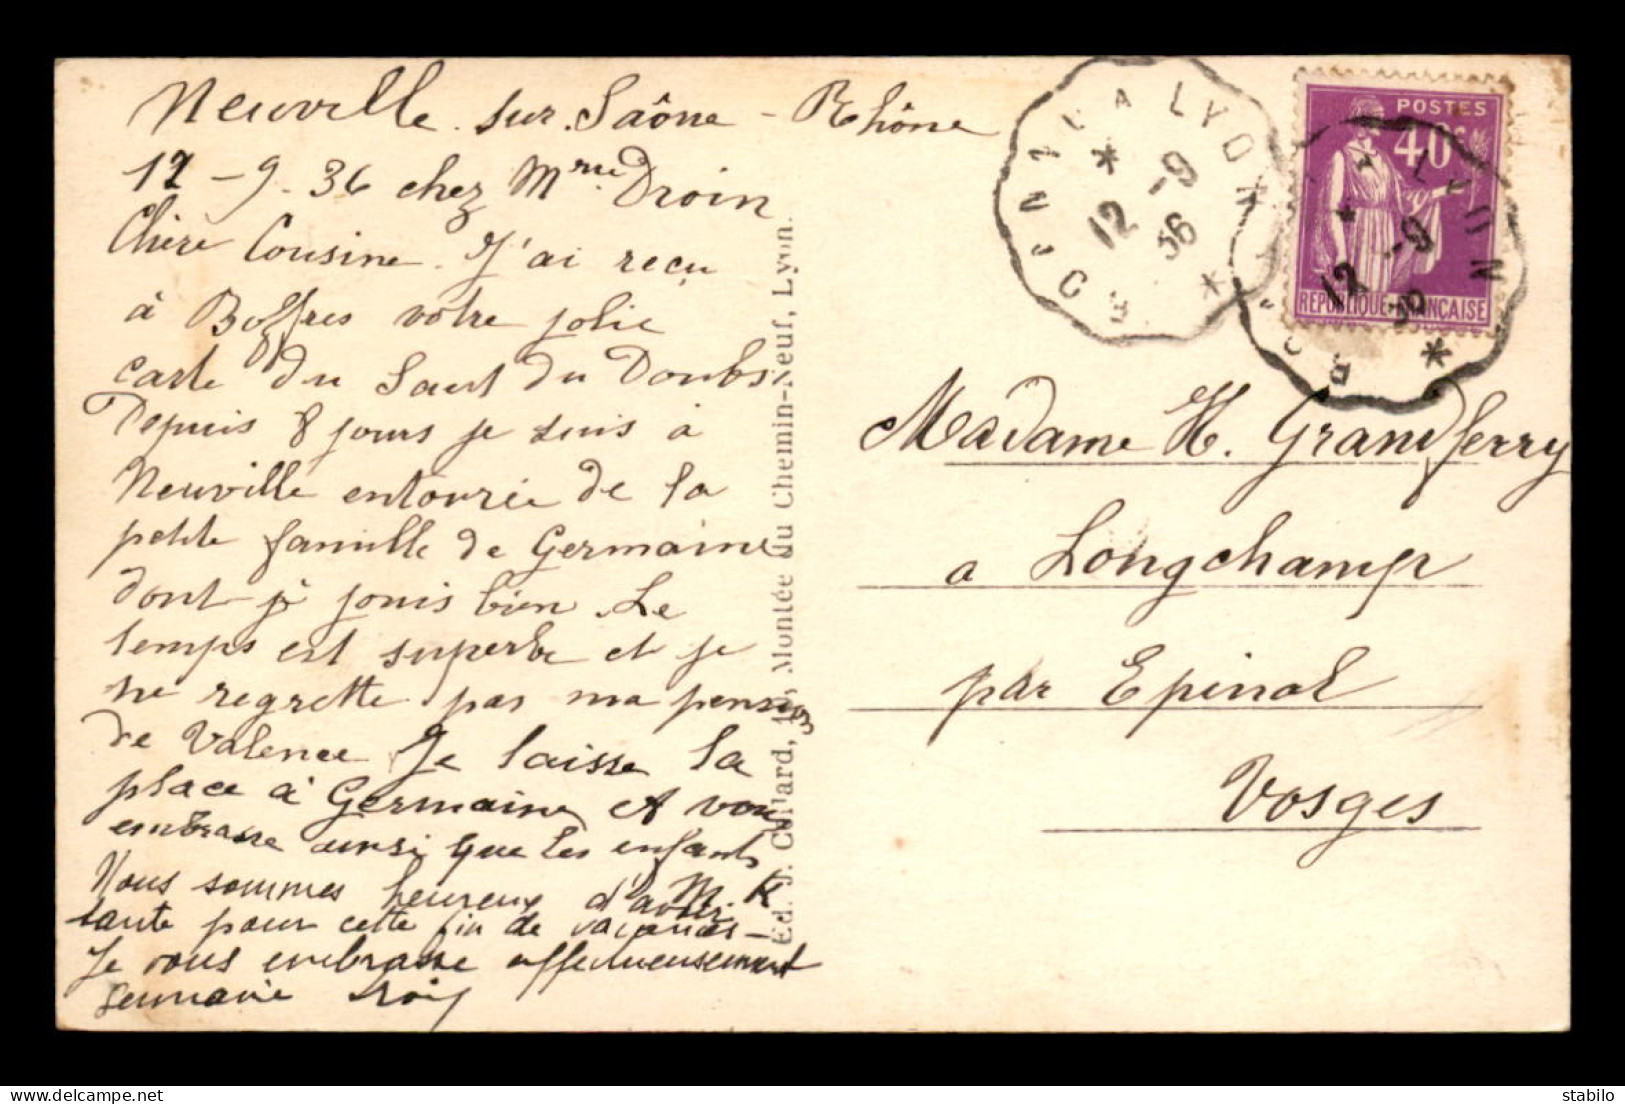 Neuville sur Saône - Rhône
12 - 9 - 36 chez Mme Droin
Chère Cousine. J'ai reçu
à Boffres votre jolie
carte du Saut du Doubs.
Depuis 8 jours je suis à
Neuville entourée de la
petite famille de Germaine
dont je jouis bien. Le
temps est superbe et je
ne regrette pas ma pension
de Valence Je laisse la
place à Germaine et vous
embrasse ainsi que les enfants
M. K
Nous sommes heureux d'avoir
tante pour cette fin de vacances -
Je vous embrasse affectueusement
Germaine Droin
Ed. J. Cellard, Montée du Chemin-Neuf, Lyon.
LYON
12 -9
36
POSTES
40c
REPUBLIQUE FRANÇAISE
LYON
12 -9
36
Madame H. Grandferry
a Longchamp
par Epinal
Vosges
delcampe.net
stabilo